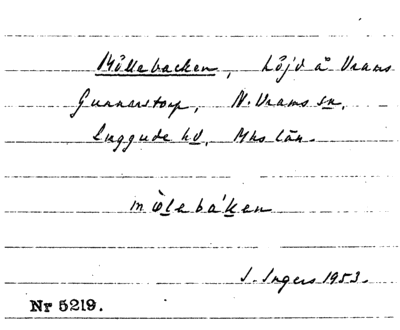 Möllebacken, höjd å Vrams
Gunnarstorp, N. Vrams sn,
Luggude hd, Mhs län.
mølebáken
I. Ingers 1953.
Nr 5219.